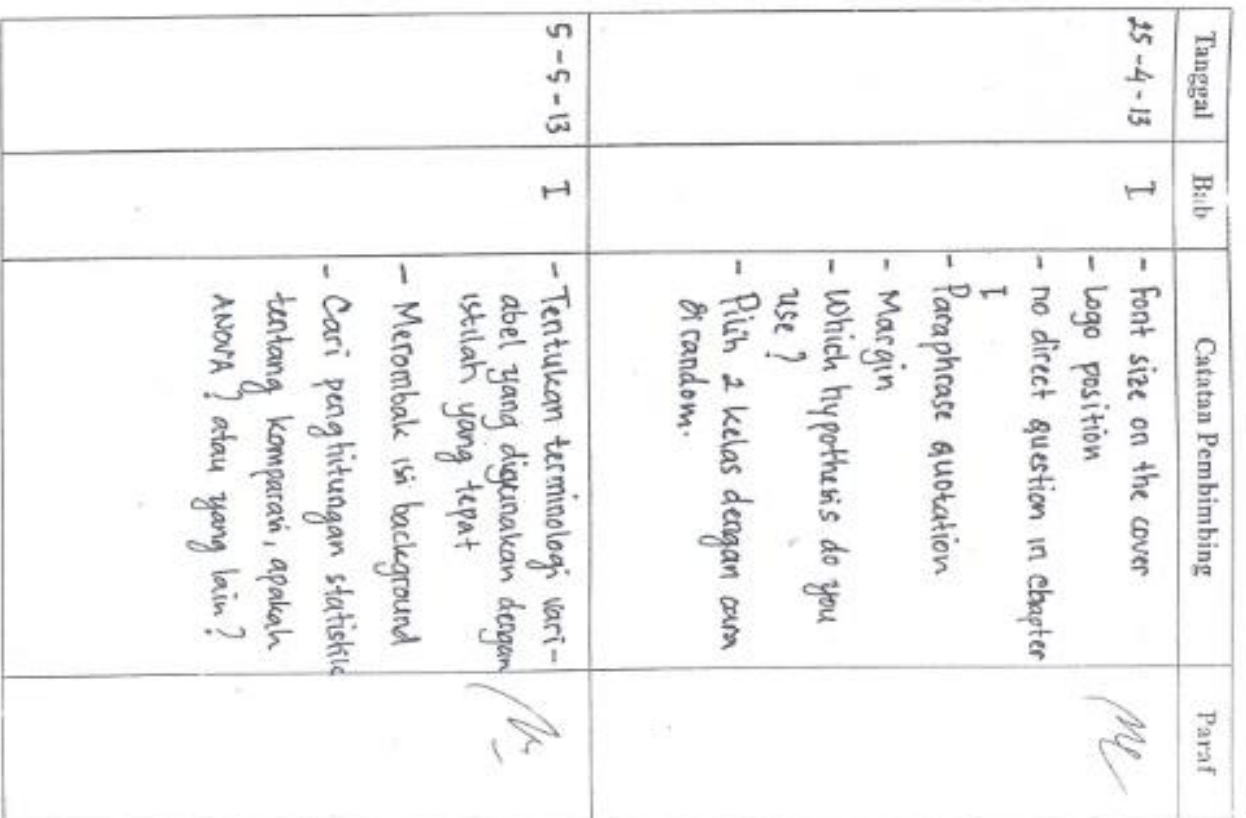 Tanggal Bab Catatan Pembimbing Paraf
25-4-13 I - Font size on the cover
- Logo position
- no direct question in chapter
I
- Paraphrase quotation
- Margin
- Which hypothesis do you
use ?
- Pilih 2 kelas dengan cara
di random.
5-5-13 I - Tentukan terminologi vari-
abel yang digunakan dengan
istilah yang tepat
- Merombak isi background
- Cari penghitungan statistik
tentang komparasi, apakah
ANOVA ? atau yang lain ?